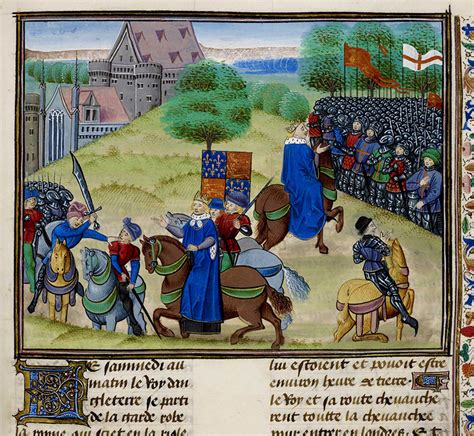 Le sammedi au
matin le Roy dan
gleterre se parti
de la garde robe
la Roine qui siet en la riole
lui estoient et pouoit estre
environ heure de tierce.
le Roy et sa route chevauche
rent toutte la chevauchee
pour entrer en londres. Et